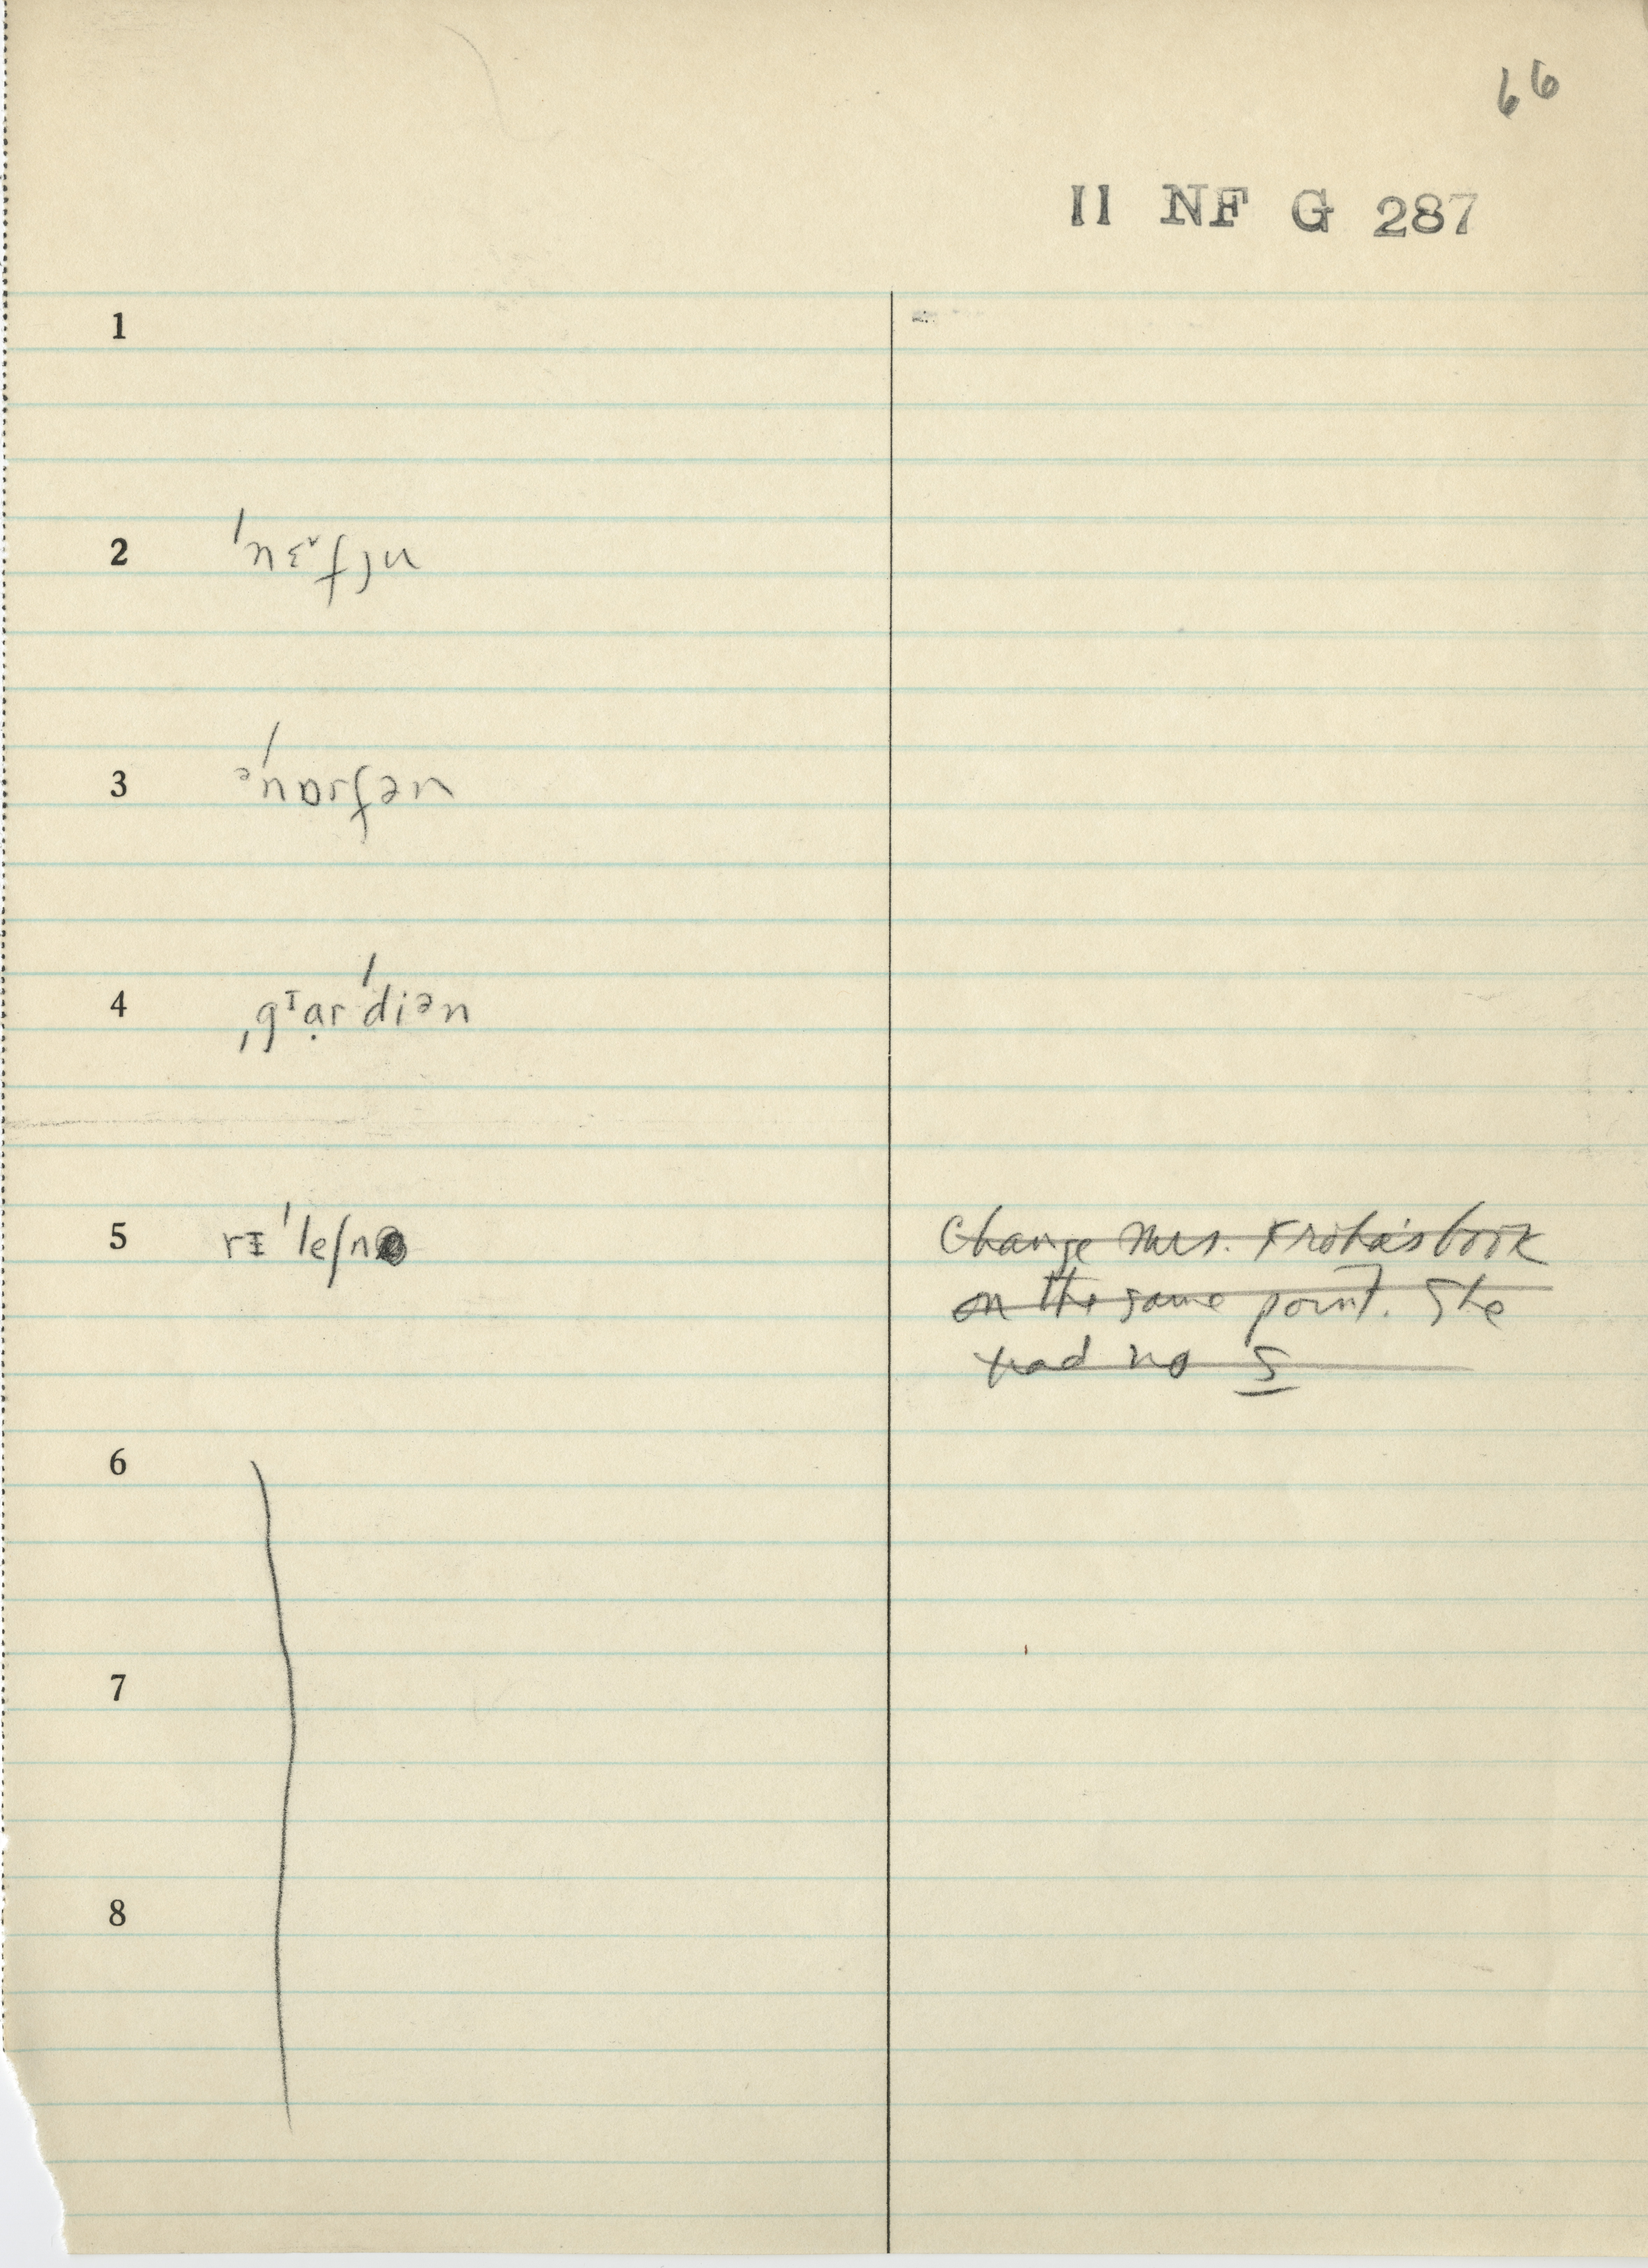 66
II NF G 287
1
2 ˈnɛˇfɪu
3 ᵊˈnɒrfən
4 ˌgᶦạrˈdiᵊn
5 rɪˈleʃn
Change Mrs. book
on the same point. She
had no 5
6
7
8